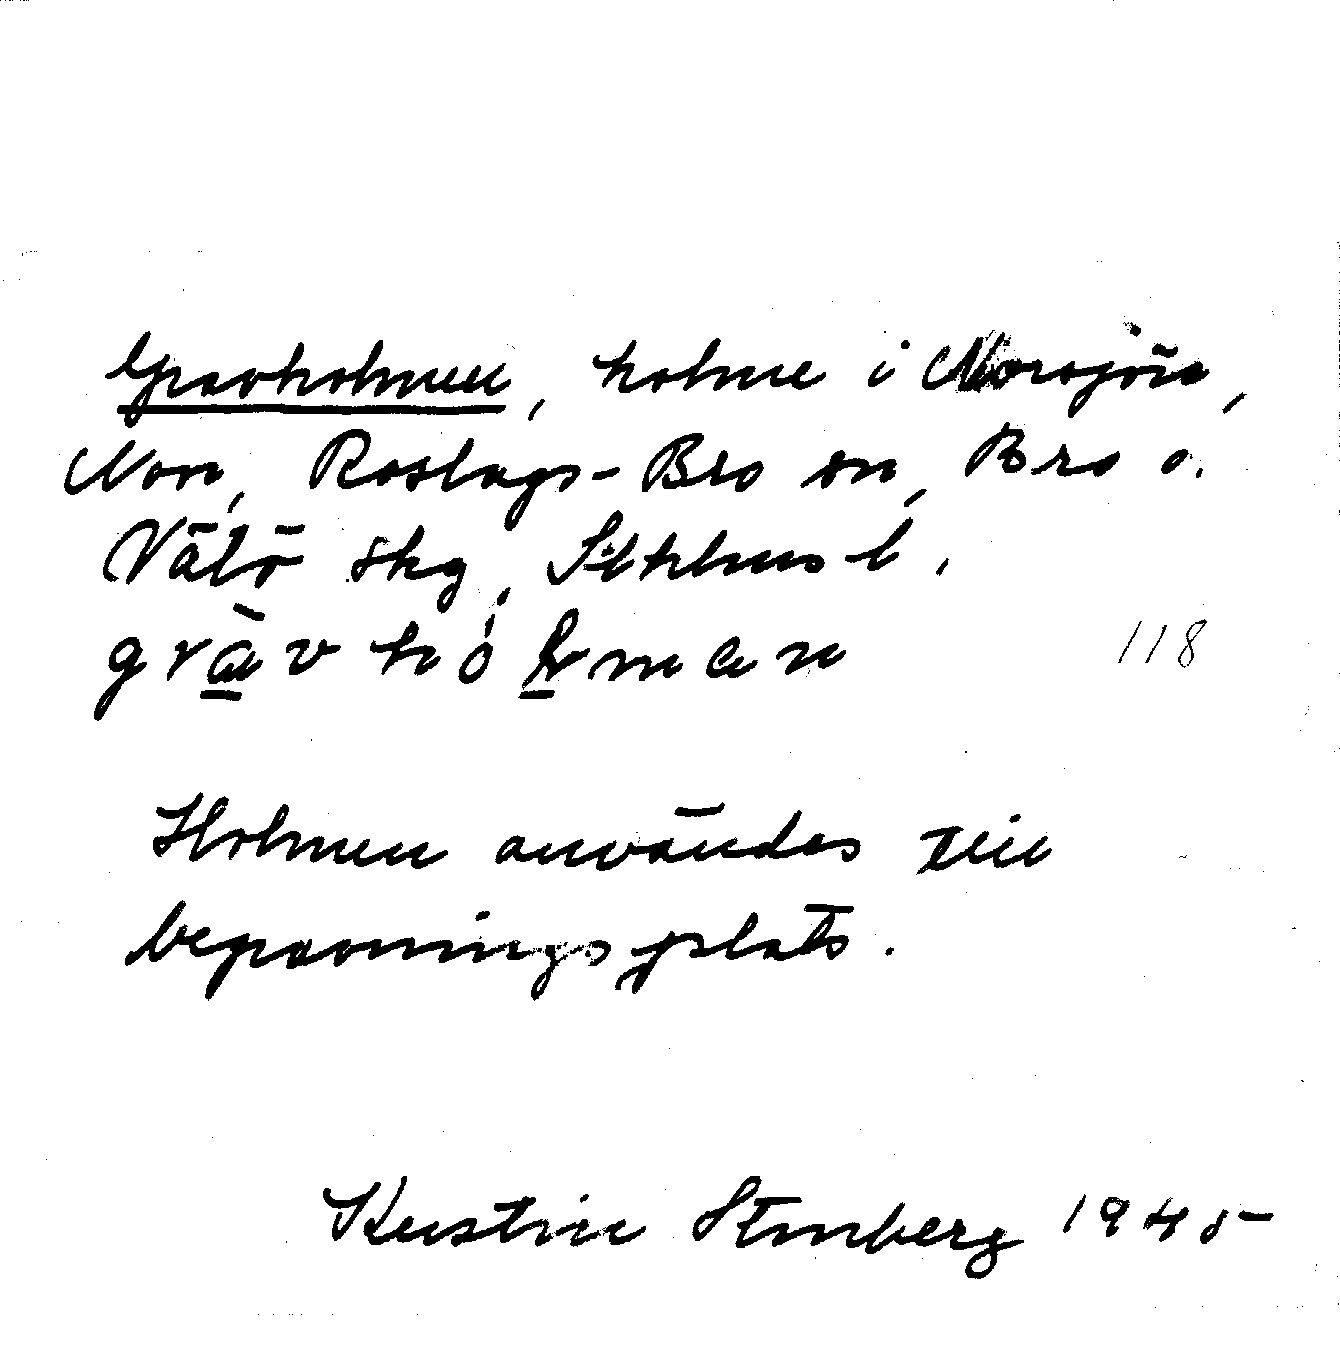 Gravholmen, holme i Norsjön,
Nor, Roslags-Bro sn, Bro o.
Vätö skg, Sthlms l.
grävhólmen 118
Holmen användes till
begravningsplats.
Kerstin Stenberg 1945